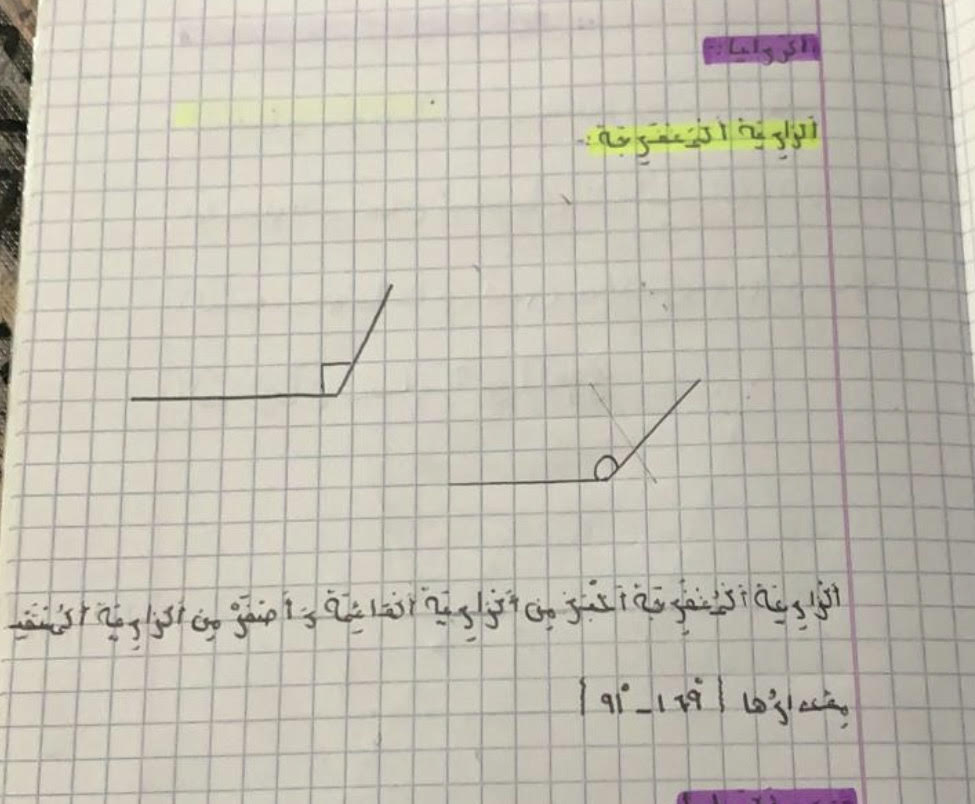 الزوايا:
الزاوية المنفرجة:
الزاوية المنفرجة أكبر من الزاوية القائمة و أصغر من الزاوية المستقيـ
مقدارها | 179° _ 91° |